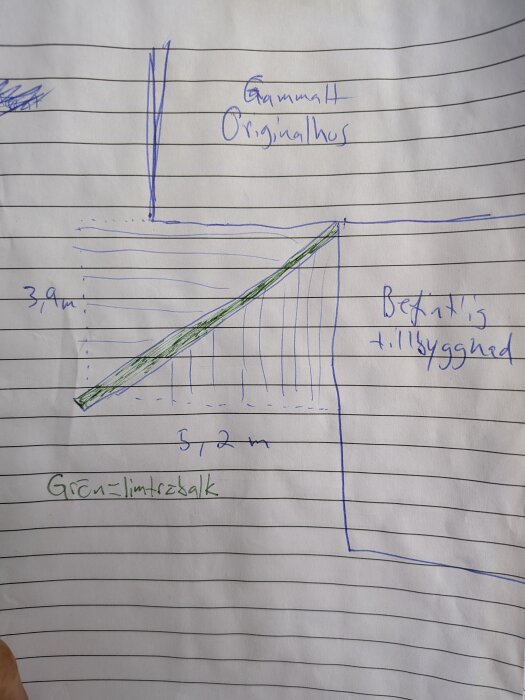 Gammalt
Originalhus
3,9m
Befintlig
tillbyggnad
5,2 m
Grön=limträbalk